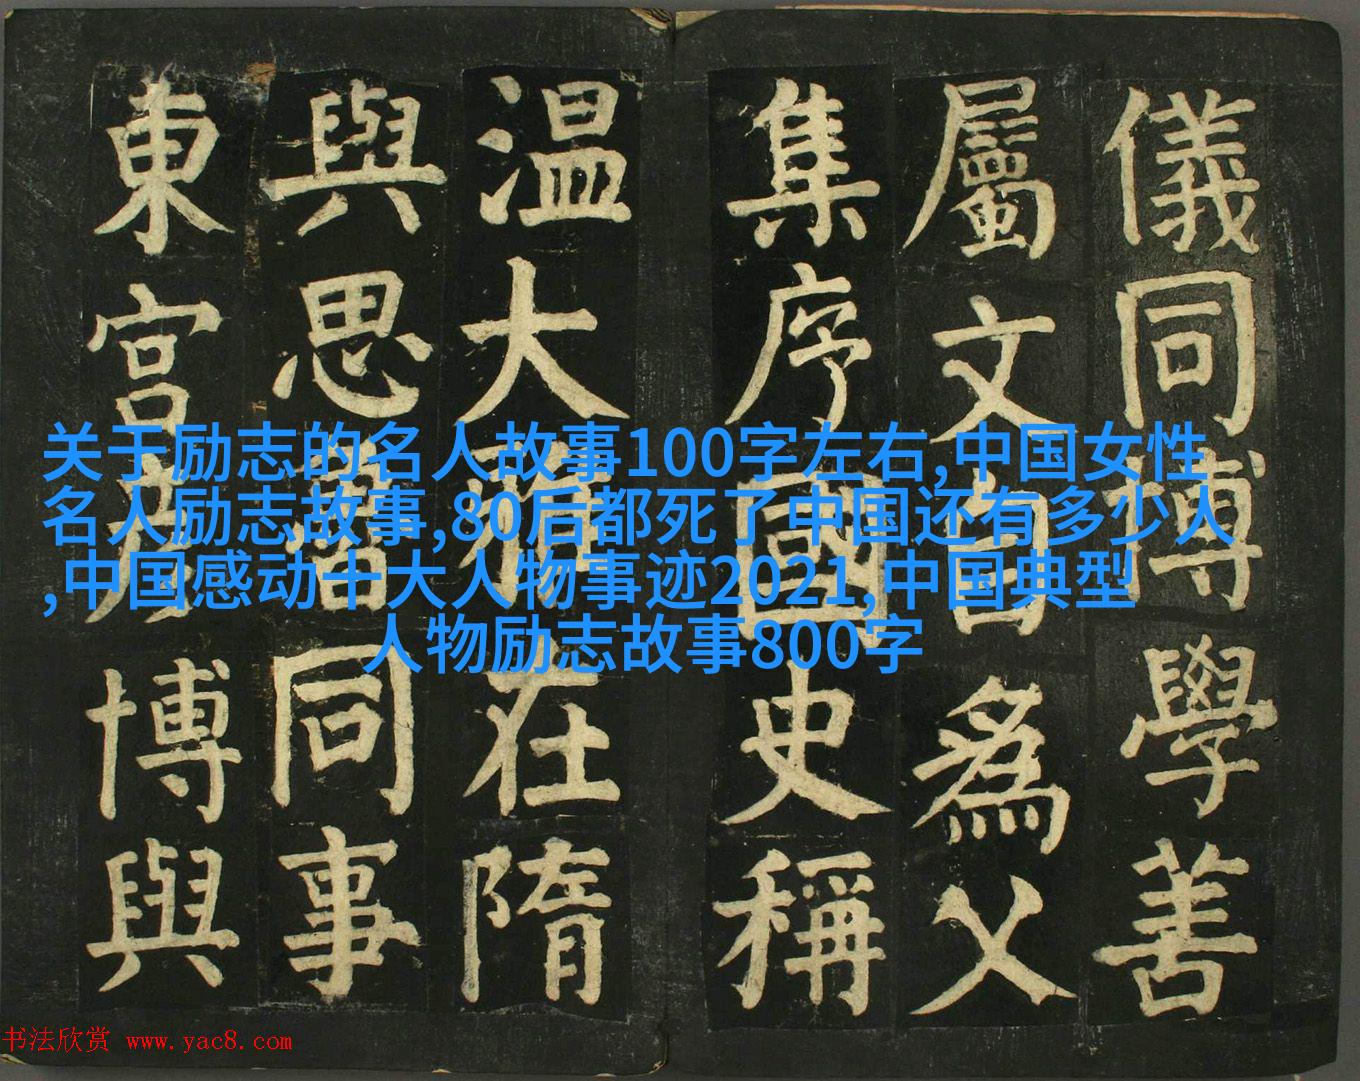 儀同博學善
屬文自爲父
集序國史稱
温大在隋
與思同事
東宮博與
关于励志的名人故事100字左右,中国女性
名人励志故事,80后都死了中国还有多少人
,中国感动十大人物事迹2021,中国典型
人物励志故事800字
书法欣赏 www.yac8.com